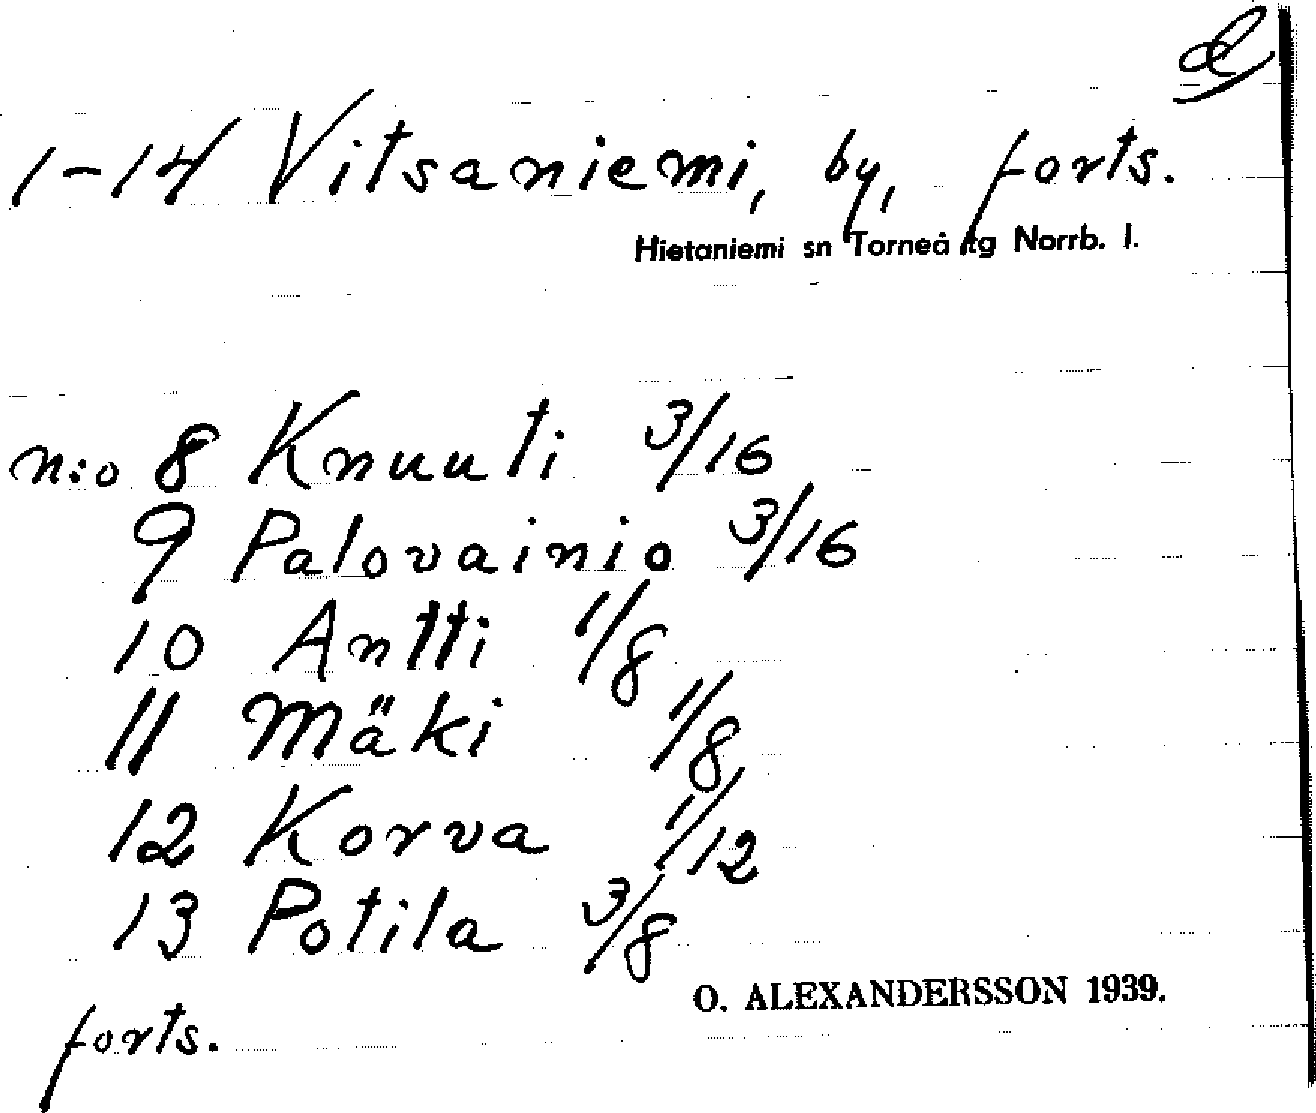 1-14 Vitsaniemi, by, forts.
Hietaniemi sn Torneå tg Norrb. l.
n:o 8 Knuuti 3/16
9 Palovainio 3/16
10 Antti 1/8
11 Mäki 1/8
12 Korva 1/12
13 Potila 3/8
O. ALEXANDERSSON 1939.
forts.